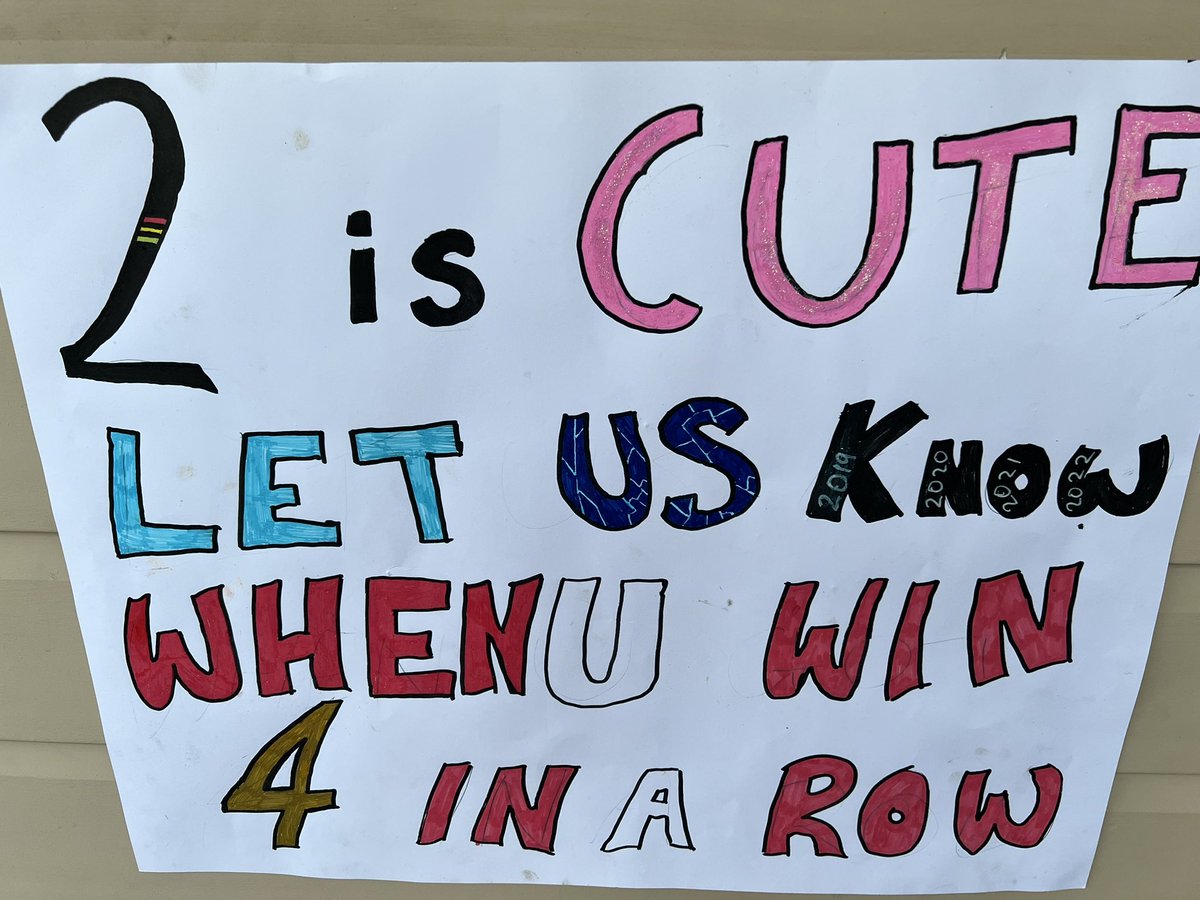 2 is CUTE
LET US KNOW
2019 2020 2021 2022
WHEN U WIN
4 IN A ROW